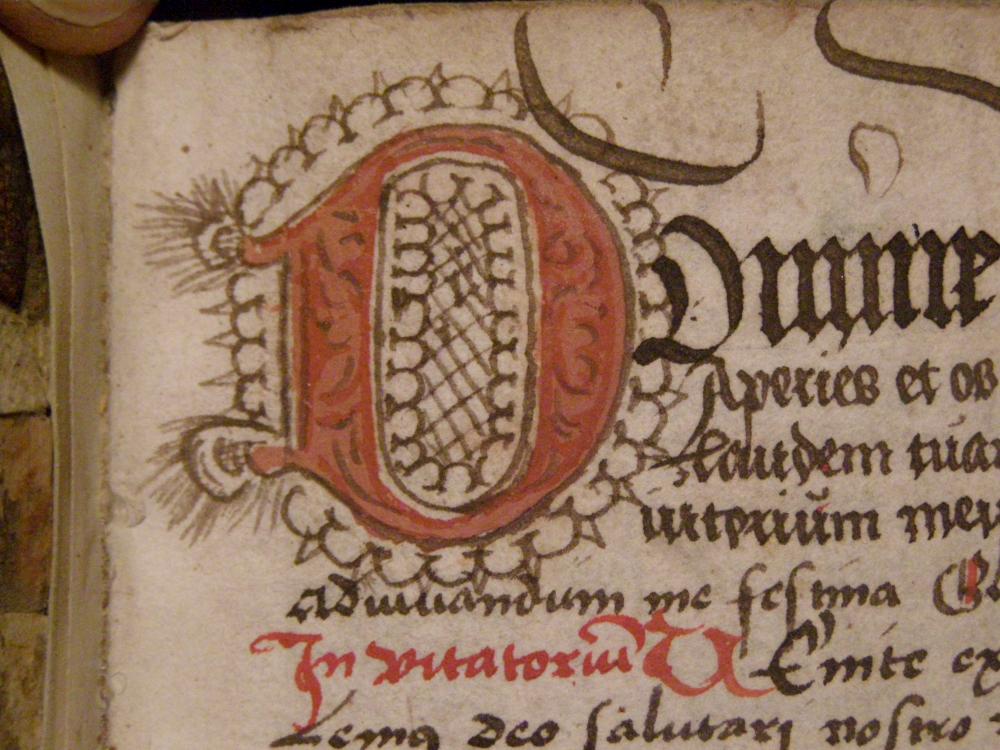 Domine
Aperies et os
Laudem tuam
iutorium meu
Adiuuandum me festina Gl
Inuitatoriũ Uenite ex
Lemꝯ deo salutari nostro